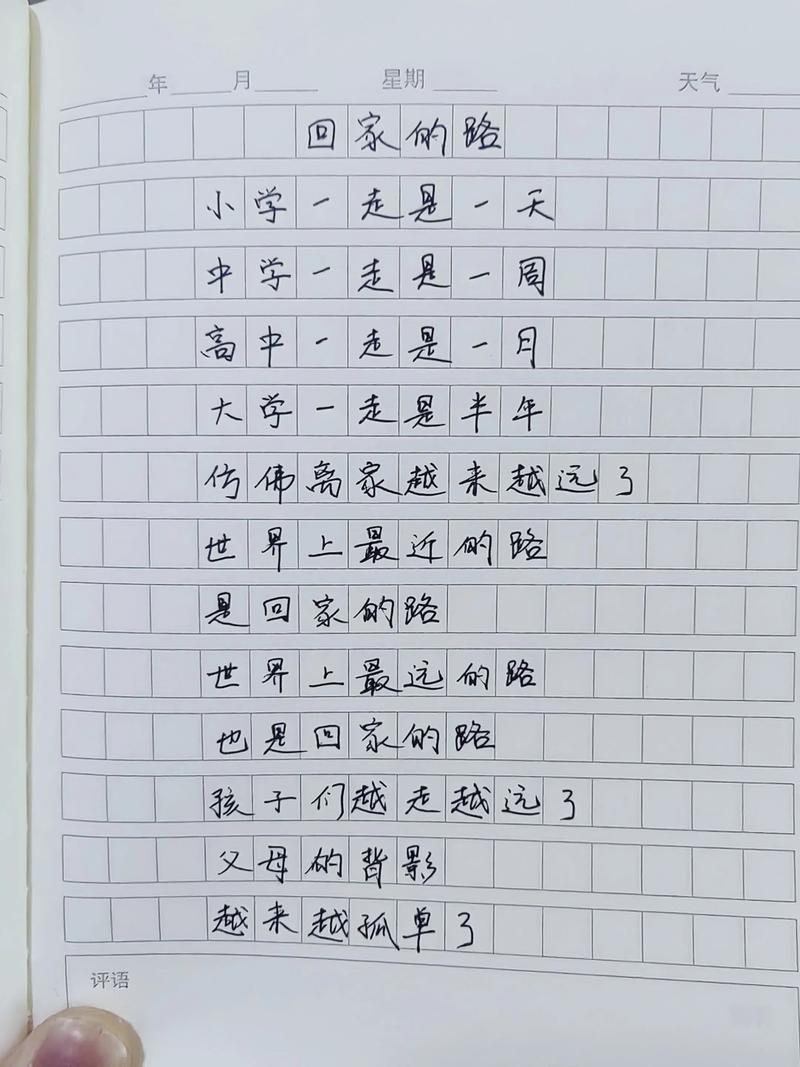 年 月 星期 天气
回家的路
小学一走是一天
中学一走是一周
高中一走是一月
大学一走是半年
仿佛离家越来越远了
世界上最近的路
是回家的路
世界上最远的路
也是回家的路
孩子们越走越远了
父母的背影
越来越孤单了
评语